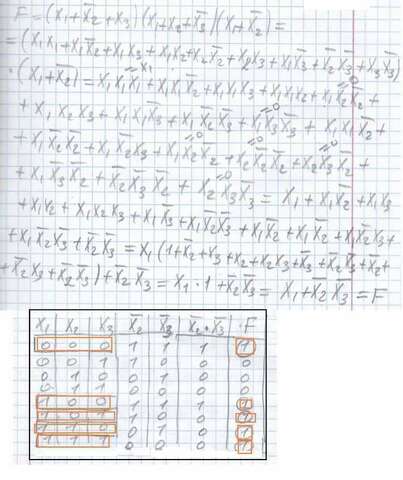 F = (x₁+x̅₂+x₃)(x₁+x₂+x̅₃)(x₁+x̅₂) =
= (x₁x₁+x₁x̅₂+x₁x₃+x₁x₂+x₂x̅₂+x₂x₃+x₁x̅₃+x̅₂x̅₃+x₃x̅₃)
·(x₁+x̅₂) = x₁x₁x₁+x₁x₁x̅₂+x₁x₁x₃+x₁x₁x₂+x₁x₂x̅₂+
+ x₁x₂x₃+x₁x₁x̅₃+x₁x̅₂x̅₃+x₁x₃x̅₃+x₁x₁x̅₂+
+x₁x̅₂x̅₂+x₁x̅₂x₃+x₁x₂x̅₂+x₂x̅₂x̅₂+x₂x₃x̅₂+
+x₁x̅₃x̅₂+x̅₂x̅₃x̅₂+x̅₂x₃x̅₃ = x₁+x₁x̅₂+x₁x₃
+x₁x₂+x₁x₂x₃+x₁x̅₃+x₁x̅₂x̅₃+x₁x̅₂+x₁x̅₂+x₁x̅₂x₃+
+x₁x̅₂x̅₃+x̅₂x̅₃ = x₁(1+x̅₂+x₃+x₂+x₂x₃+x̅₃+x̅₂x̅₃+x̅₂+
+x̅₂x₃+x̅₂x̅₃)+x̅₂x̅₃ = x₁·1+x̅₂x̅₃ = x₁+x̅₂x̅₃ = F
x₁ x₂ x₃ x̅₂ x̅₃ x̅₂·x̅₃ F
0 0 0 1 1 1 1
0 0 1 1 0 0 0
0 1 0 0 1 0 0
0 1 1 0 0 0 0
1 0 0 1 1 1 1
1 0 1 1 0 0 1
1 1 0 0 1 0 1
1 1 1 0 0 0 1